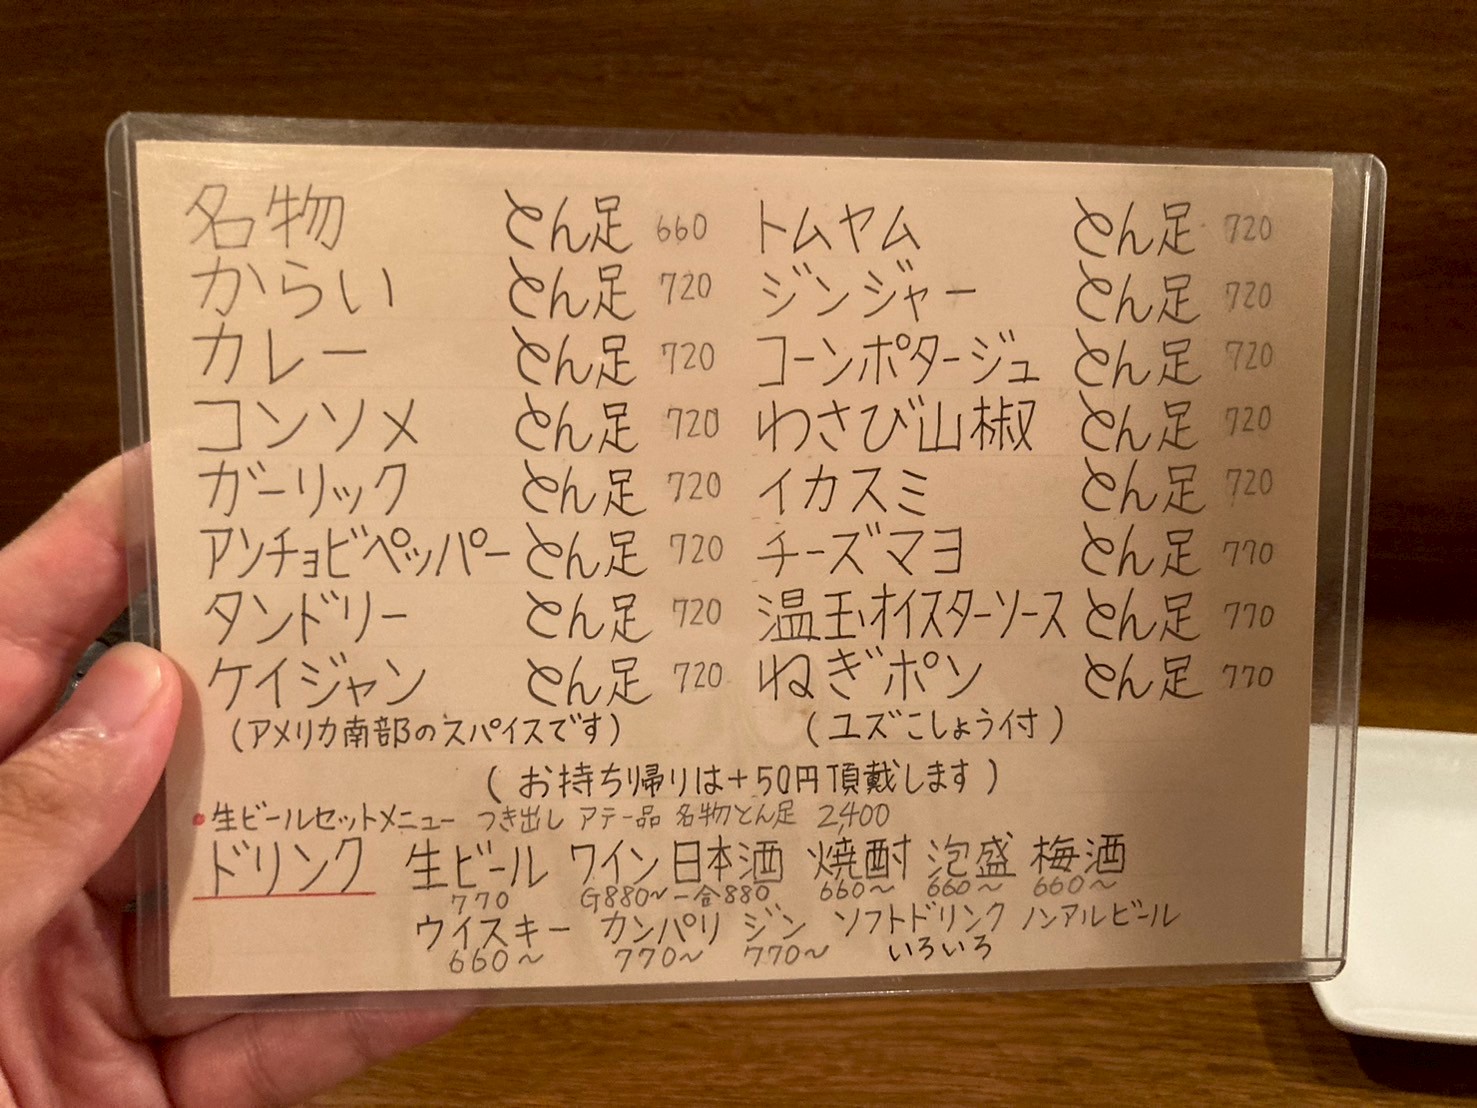 名物 とん足 660 トムヤム とん足 720
からい とん足 720 ジンジャー とん足 720
カレー とん足 720 コーンポタージュ とん足 720
コンソメ とん足 720 わさび山椒 とん足 720
ガーリック とん足 720 イカスミ とん足 720
アンチョビペッパー とん足 720 チーズマヨ とん足 770
タンドリー とん足 720 温玉オイスターソース とん足 770
ケイジャン とん足 720 ねぎポン とん足 770
(アメリカ南部のスパイスです) (ユズこしょう付)
(お持ち帰りは+50円頂戴します)
・生ビールセットメニュー つき出し アテ一品 名物とん足 2,400
ドリンク 生ビール ワイン 日本酒 焼酎 泡盛 梅酒
770 G880〜 一合880 660〜 660〜 660〜
ウイスキー カンパリ ジン ソフトドリンク ノンアルビール
660〜 770〜 770〜 いろいろ